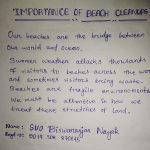 IMPORTANCE OF BEACH CLEANUPS
Our beaches are the bridge between
our world and ocean.
Summer weather attacks thousands
of visitors to beaches across the world
and sometimes visitors bring waste.
Beaches are fragile environments
We must be attentive in how we
treat these stretches of land.
Name: SUO Biswaranjan Nayak
Regt no: